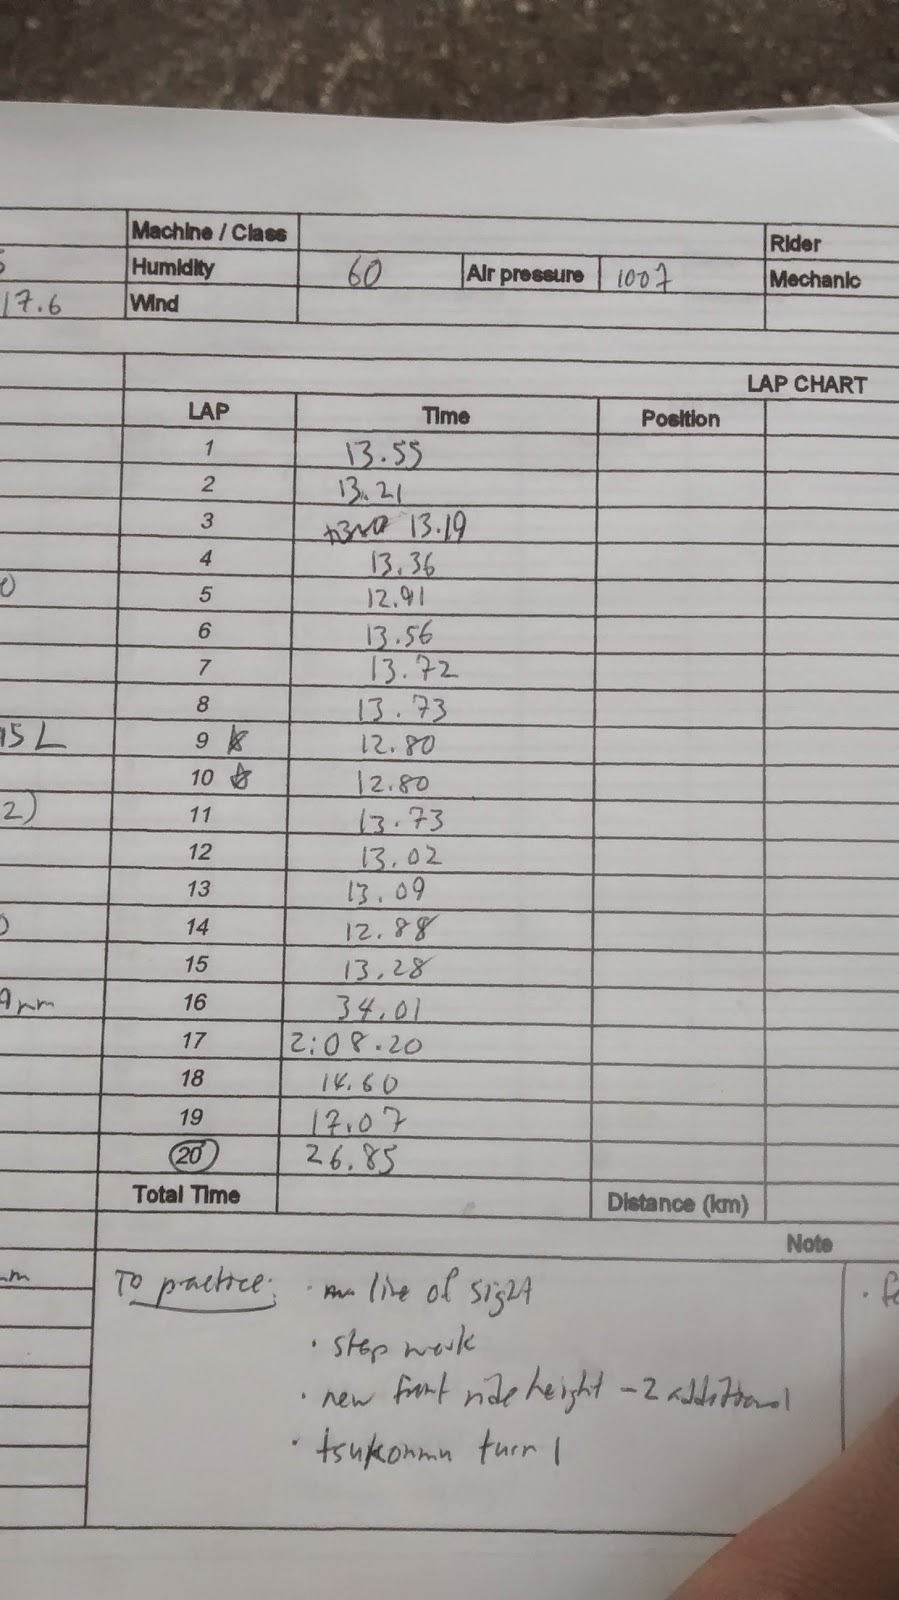 Machine / Class
Rider
Humidity 60 Air pressure 1007 Mechanic
17.6 Wind
LAP CHART
LAP Time Position
1 13.55
2 13.21
3 13.19
4 13.36
5 12.91
6 13.56
7 13.72
8 13.73
15L 9 12.80
10 12.80
2) 11 13.73
12 13.02
13 13.09
14 12.88
15 13.28
9mm 16 34.01
17 2:08.20
18 14.60
19 17.07
20 26.85
Total Time Distance (km)
Note
To practice: · line of sight
· step work
· new front ride height -2 additional
· tsukommu turn 1